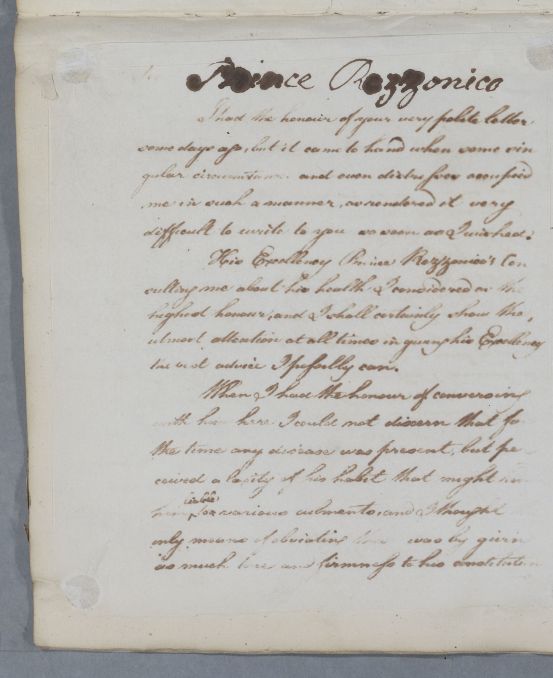 Prince Rezzonico
I had the honour of your very polite letter
some days ago, but it came to hand when some sin
gular circumstances and even distresses occupied
me in such a manner, as rendered it very
difficult to write to you as soon as I wished.
His Excellency Prince Rezzonico's Con
sulting me about his health I considered as the
highest honour, and I shall certainly show the
utmost attention at all times in giving his Excellency
the best advice I possibly can.
When I had the honour of conversing
with him here I could not discern that for
the time any disease was present, but per
ceived a laxity of his habit that might
him liable for various ailments, and I thought
only means of obviating was by givin
as much tone and firmness to his constitution